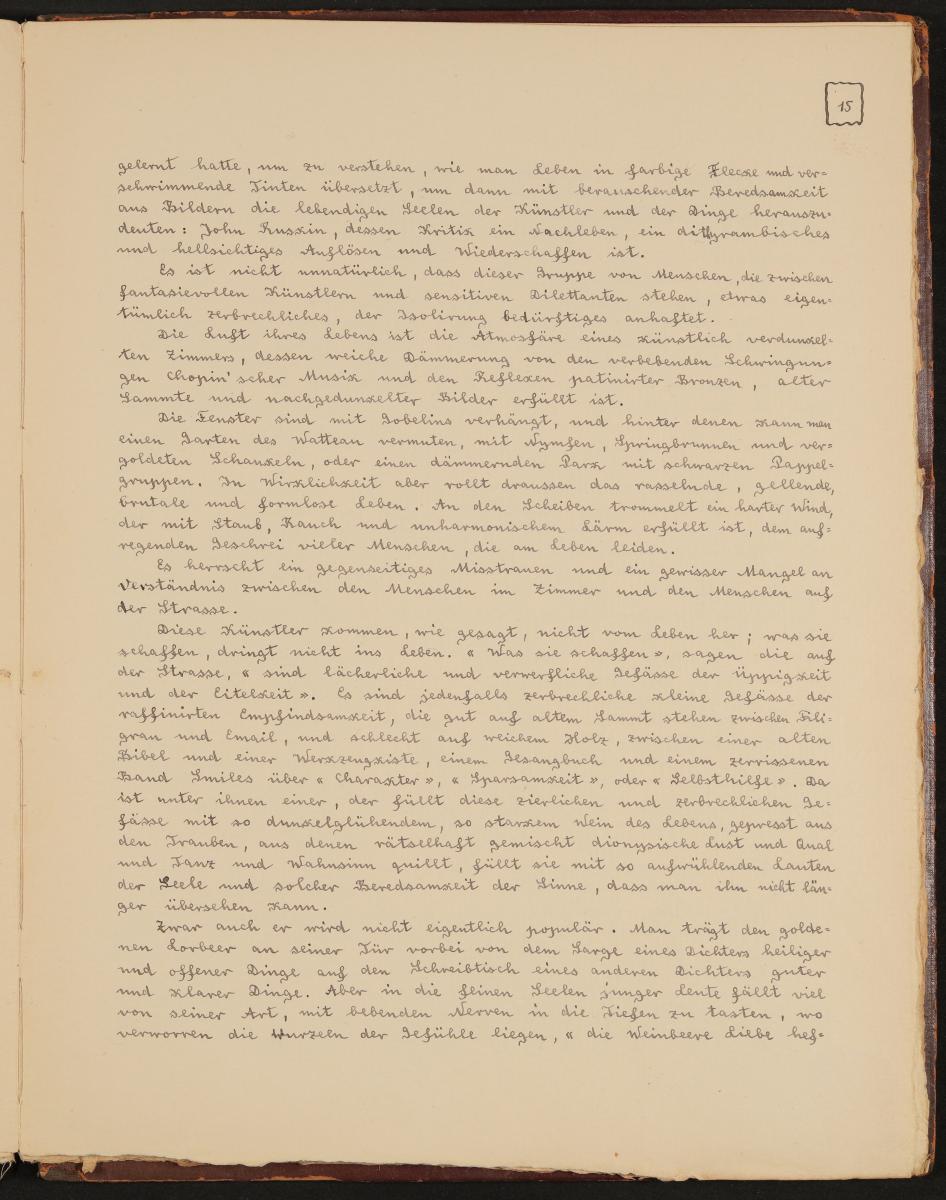 15
gelernt hatte, um zu verstehen, wie man Leben in farbige Flecke und ver=
schwimmende Tinten übersetzt, um dann mit berauschender Beredsamkeit
aus Bildern die lebendigen Seelen der Künstler und der Dinge herauszu=
deuten: John Ruskin, dessen Kritik ein Nachleben, ein dithyrambisches
und hellsichtiges Auflösen und Wiederschaffen ist.
Es ist nicht unnatürlich, dass dieser Gruppe von Menschen, die zwischen
fantasievollen Künstlern und sensitiven Dilettanten stehen, etwas eigen=
tümlich zerbrechliches, der Isolirung bedürftiges anhaftet.
Die Luft ihres Lebens ist die Atmosfäre eines künstlich verdunkel=
ten Zimmers, dessen weiche Dämmerung von den verbebenden Schwingun=
gen Chopin'scher Musik und den Reflexen patinirter Bronzen, alter
Sammte und nachgedunkelter Bilder erfüllt ist.
Die Fenster sind mit Gobelins verhängt, und hinter denen kann man
einen Garten des Watteau vermuten, mit Nymfen, Springbrunnen und ver=
goldeten Schaukeln, oder einen dämmernden Park mit schwarzen Pappel=
gruppen. In Wirklichkeit aber rollt draussen das rasselnde, gellende,
brutale und formlose Leben. An den Scheiben trommelt ein harter Wind,
der mit Staub, Rauch und unharmonischem Lärm erfüllt ist, dem auf=
regenden Geschrei vieler Menschen, die am Leben leiden.
Es herrscht ein gegenseitiges Misstrauen und ein gewisser Mangel an
Verständnis zwischen den Menschen im Zimmer und den Menschen auf
der Strasse.
Diese Künstler kommen, wie gesagt, nicht vom Leben her; was sie
schaffen, dringt nicht ins Leben. « Was sie schaffen », sagen die auf
der Strasse, « sind lächerliche und verwerfliche Gefässe der Üppigkeit
und der Eitelkeit ». Es sind jedenfalls zerbrechliche kleine Gefässe der
raffinirten Empfindsamkeit, die gut auf altem Sammt stehen zwischen Fili=
gran und Email, und schlecht auf weichem Holz, zwischen einer alten
Bibel und einer Werkzeugkiste, einem Gesangbuch und einem zerrissenen
Band Smiles über « Charakter », « Sparsamkeit », oder « Selbsthilfe ». Da
ist unter ihnen einer, der füllt diese zierlichen und zerbrechlichen Ge=
fässe mit so dunkelglühendem, so starkem Wein des Lebens, gepresst aus
den Trauben, aus denen rätselhaft gemischt dionysische Lust und Qual
und Tanz und Wahnsinn quillt, füllt sie mit so aufwühlenden Lauten
der Seele und solcher Beredsamkeit der Sinne, dass man ihn nicht län=
ger übersehen kann.
Zwar auch er wird nicht eigentlich populär. Man trägt den golde=
nen Lorbeer an seiner Tür vorbei von dem Sarge eines Dichters heiliger
und offener Dinge auf den Schreibtisch eines anderen Dichters guter
und klarer Dinge. Aber in die feinen Seelen junger Leute fällt viel
von seiner Art, mit bebenden Nerven in die Tiefen zu tasten, wo
verworren die Wurzeln der Gefühle liegen, « die Weinbeere Liebe hef=